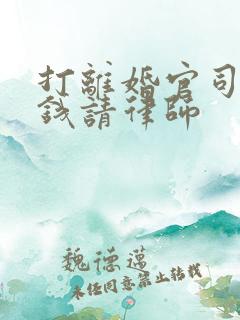 打離婚官司
錢請律師
魏德邁
未经同意禁止转载